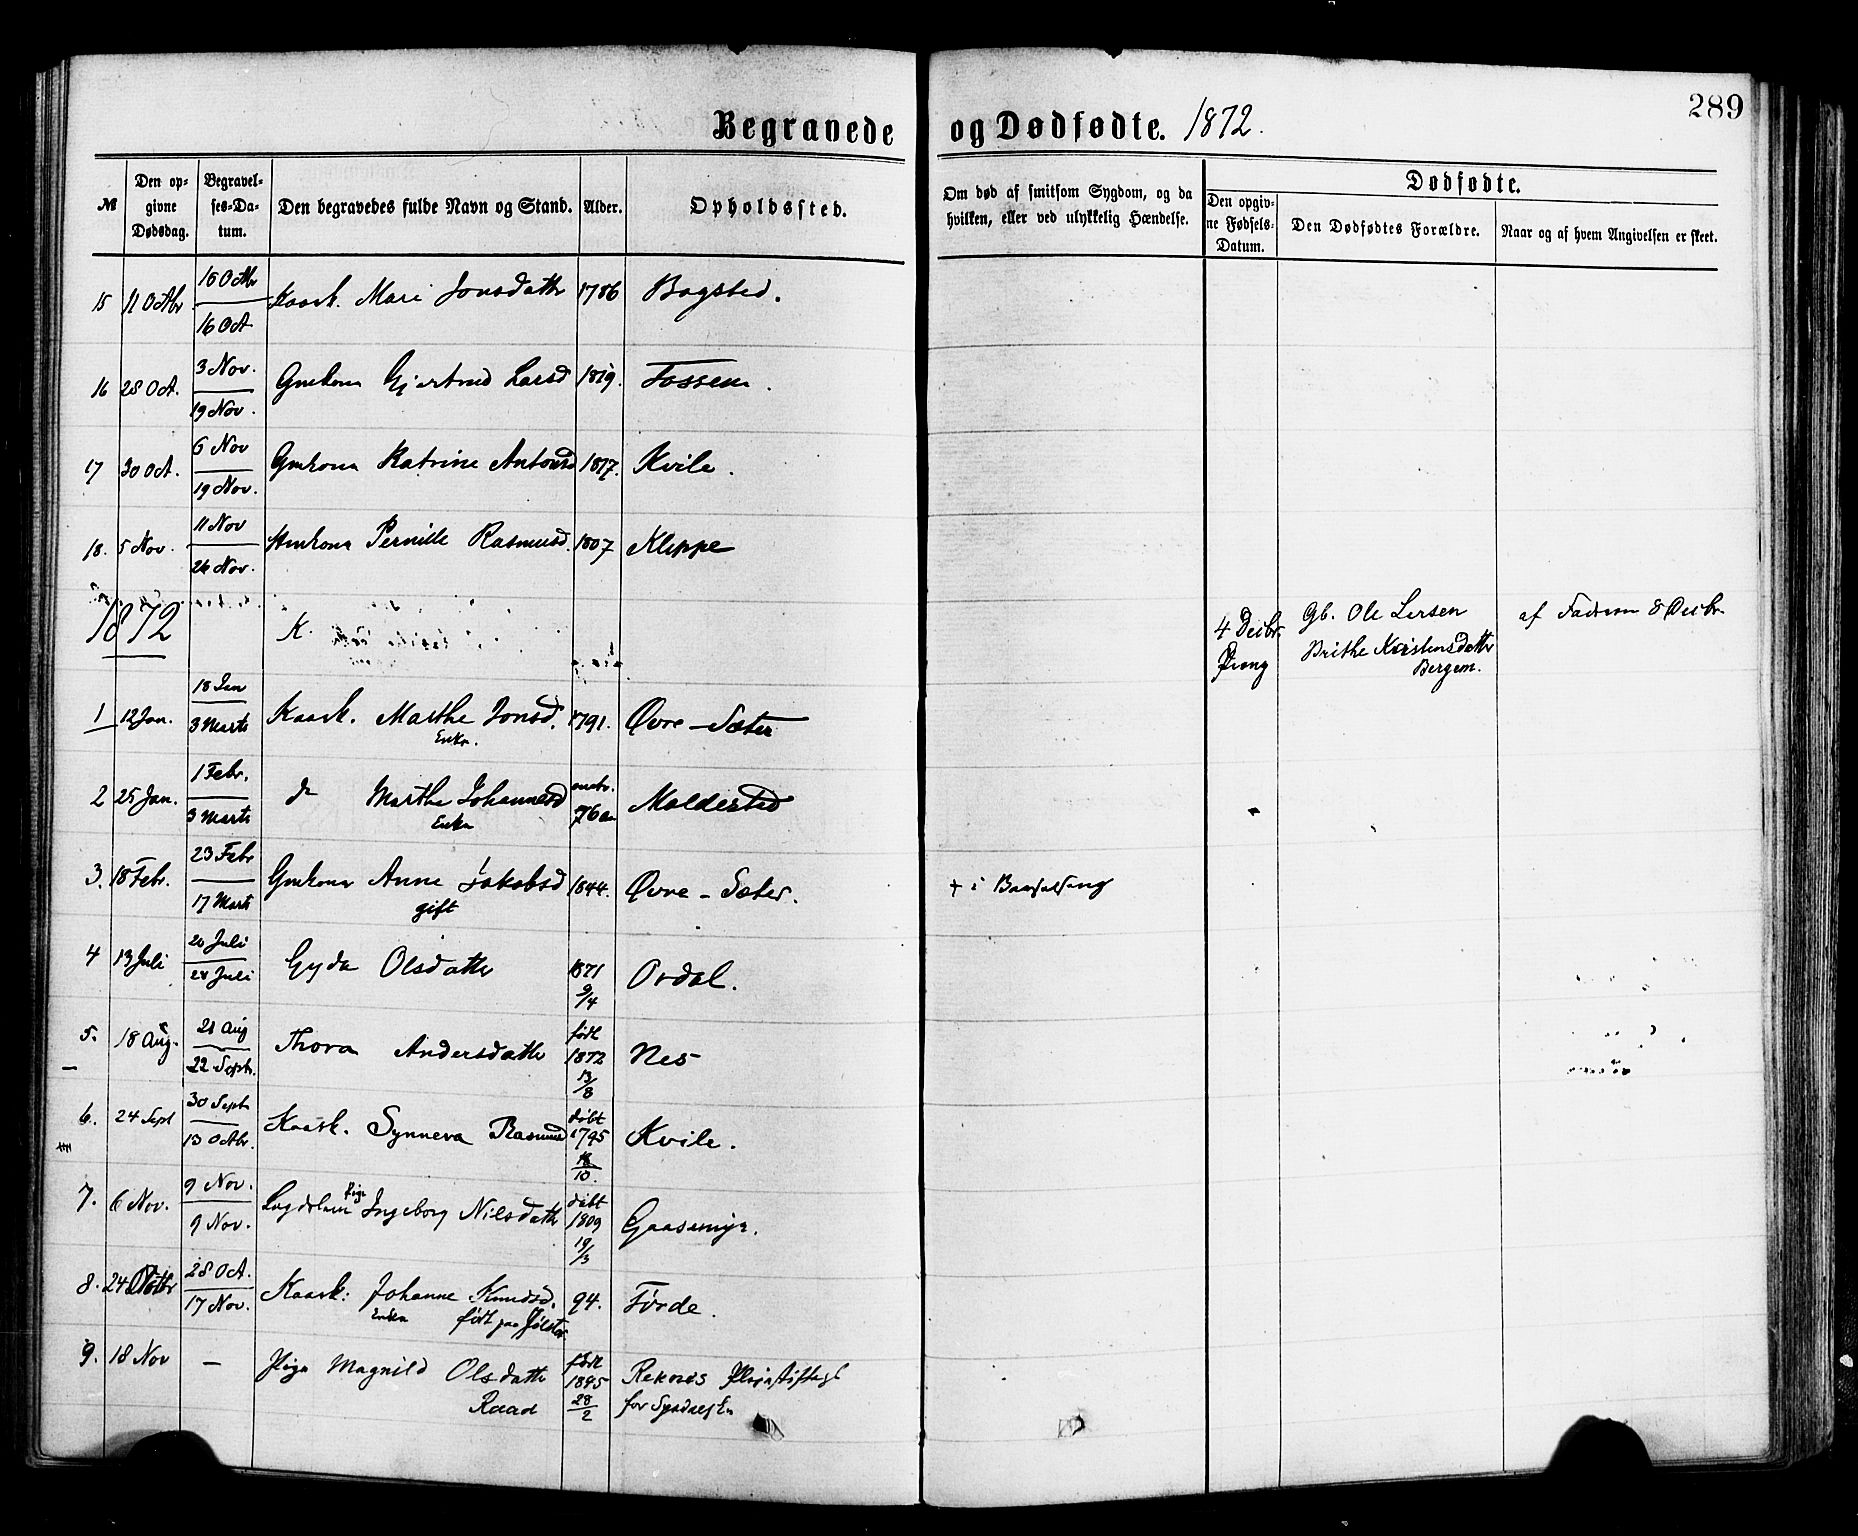 Begravede og Dødfødte. 1872.
289
№
Den opgivne Dødsdag.
Begravelses-Datum.
Den begravedes fulde Navn og Stand.
Alder.
Opholdssted.
Om død af smitsom Sygdom, og da hvilken, eller ved ulykkelig Hændelse.
Dødfødte.
Den opgivne Fødsels-Datum.
Den Dødfødtes Forældre.
Naar og af hvem Angivelsen er skeet.
15 11 Octbr 15 Octbr 16 Oct Kaark. Mari Jonsdattr 1786 Bogsted.
16 28 Oct. 3 Nov. 19 Nov. Gmkona Gjertrud Larsd 1819. Fossem.
17 30 Oct. 6 Nov 19 Nov. Gmkona Katrine Antonsd 1817. Kvile.
18. 5 Nov. 11 Nov 26 Nov. Hmkona Pernille Rasmusd. 1807 Kleppe
1872 K.
4 Decbr Gb. Ole Larsen af Faderen 8 Decbr
Dreng Brithe Kristensdatter
Bergem.
1 12 Jan. 18 Jan 3 Marts Kaark. Marthe Jonsd. 1791. Øvre-Sæter
Enke.
2 25 Jan. 1 Febr. 3 Marts do Marthe Johannesd omtr. 76 Moldested
Enke
3. 18 Febr. 23 Febr 17 Marts Gmkona Anne Jakobsd 1844. Øvre-Sæter. + i Barselseng
gift
4 13 Juli 20 Juli 28 Juli Gyda Olsdattr 1871 9/4 Ordal.
5. 18 Aug. 21 Aug 22 Septr. Thora Andersdattr født 1872 13/8 Nes
6. 24 Sept 30 Sept 13 Octbr. Kaark. Synneva Rasmusd døbt 1795 18/10. Kvile.
7. 6 Nov. 9 Nov. 9 Nov. Lægdslem Pige Ingeborg Nilsdattr døbt 1809 19/3 Gaasemyr.
8. 24 Octbr 28 Oct. 17 Nov. Kaark: Johanne Knudsd. 94. Førde.
Enke født paa Jølster
9. 18 Nov — Pige Magnild Olsdattr født 1845 28/2 Reknes Pleiestiftelse
Raad for Spedalske